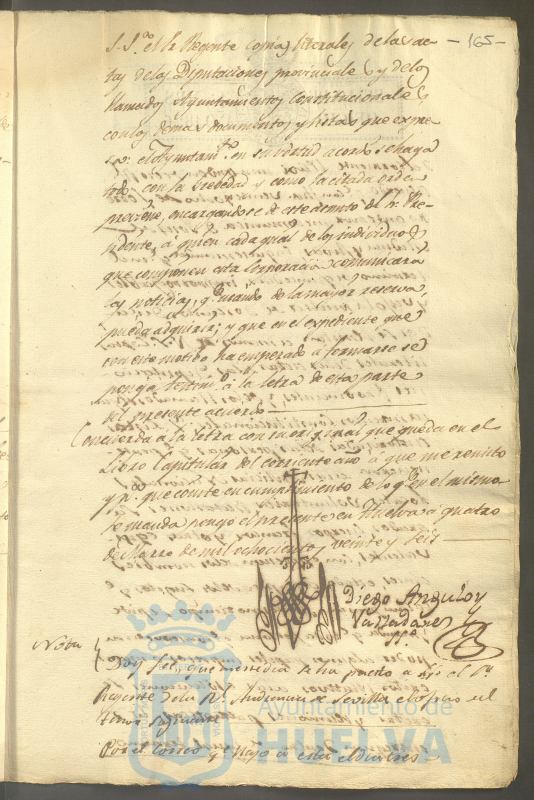 S. S.ª el Sr. Regente copias literales de las ac- -165-
tas de las Diputaciones provinciales y de los
llamados Ayuntamientos Constitucionales
con los demas documentos y listas que expre-
sa: el Ayuntam.to en su virtud acordó se haga
todo con la brebedad y como la citada orden
previene, encargandose de este asunto el Sr. Pre-
sidente, a quien cada qual de los individuos
que componen esta Corporacion comunicará
las noticias, q. usando de la mayor reserva,
pueda adquirir; y que en el expediente que
con este motibo ha empezado a formarse se
ponga testim.o a la letra de esta parte
del presente acuerdo
Concuerda a la letra con su original que queda en el
Libro Capitular del corriente año a que me remito
y p.a que conste en cumplimiento de lo q.e en el mismo
se manda pongo el presente en Huelva a quatro
de Marzo de mil ochocientos veinte y seis
Diego Anguloy
Valladares
Nota
Doy fe que
ha puesto a
el Sr.
Regente de la R.l Audiencia de Sevilla el oficio del
tenor siguiente
Por el Correo
Ayuntamiento de
HUELVA